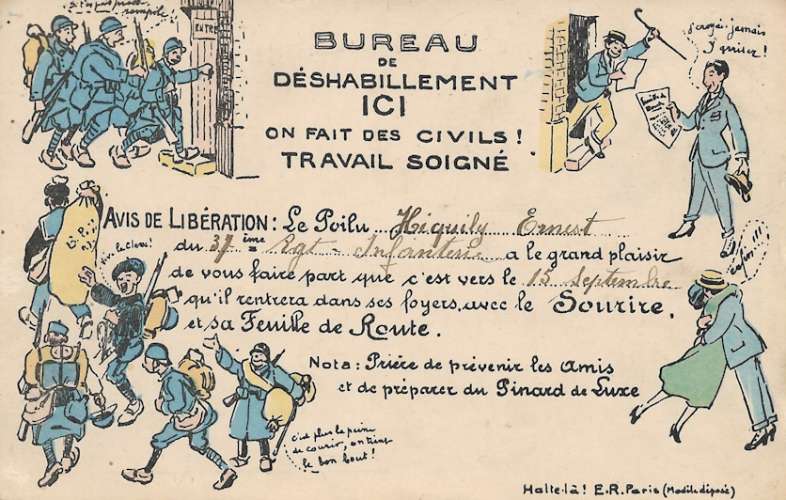 BUREAU
DE
DÉSHABILLEMENT
ICI
ON FAIT DES CIVILS !
TRAVAIL SOIGNÉ
J'aurai jamais
AVIS DE LIBÉRATION : Le Poilu Higuily Ernest
du 37 ième Rgt - Infanterie a le grand plaisir
de vous faire part que c'est vers le 13 Septembre
qu'il rentrera dans ses foyers avec le Sourire,
et sa Feuille de Route.
Nota : Prière de prévenir les Amis
et de préparer du Pinard de Luxe
enfin !!!
vive la classe !
c'est plus la peine
de courir, on tient
le bon bout !
Halte-là ! E.R. Paris (Modèle déposé)